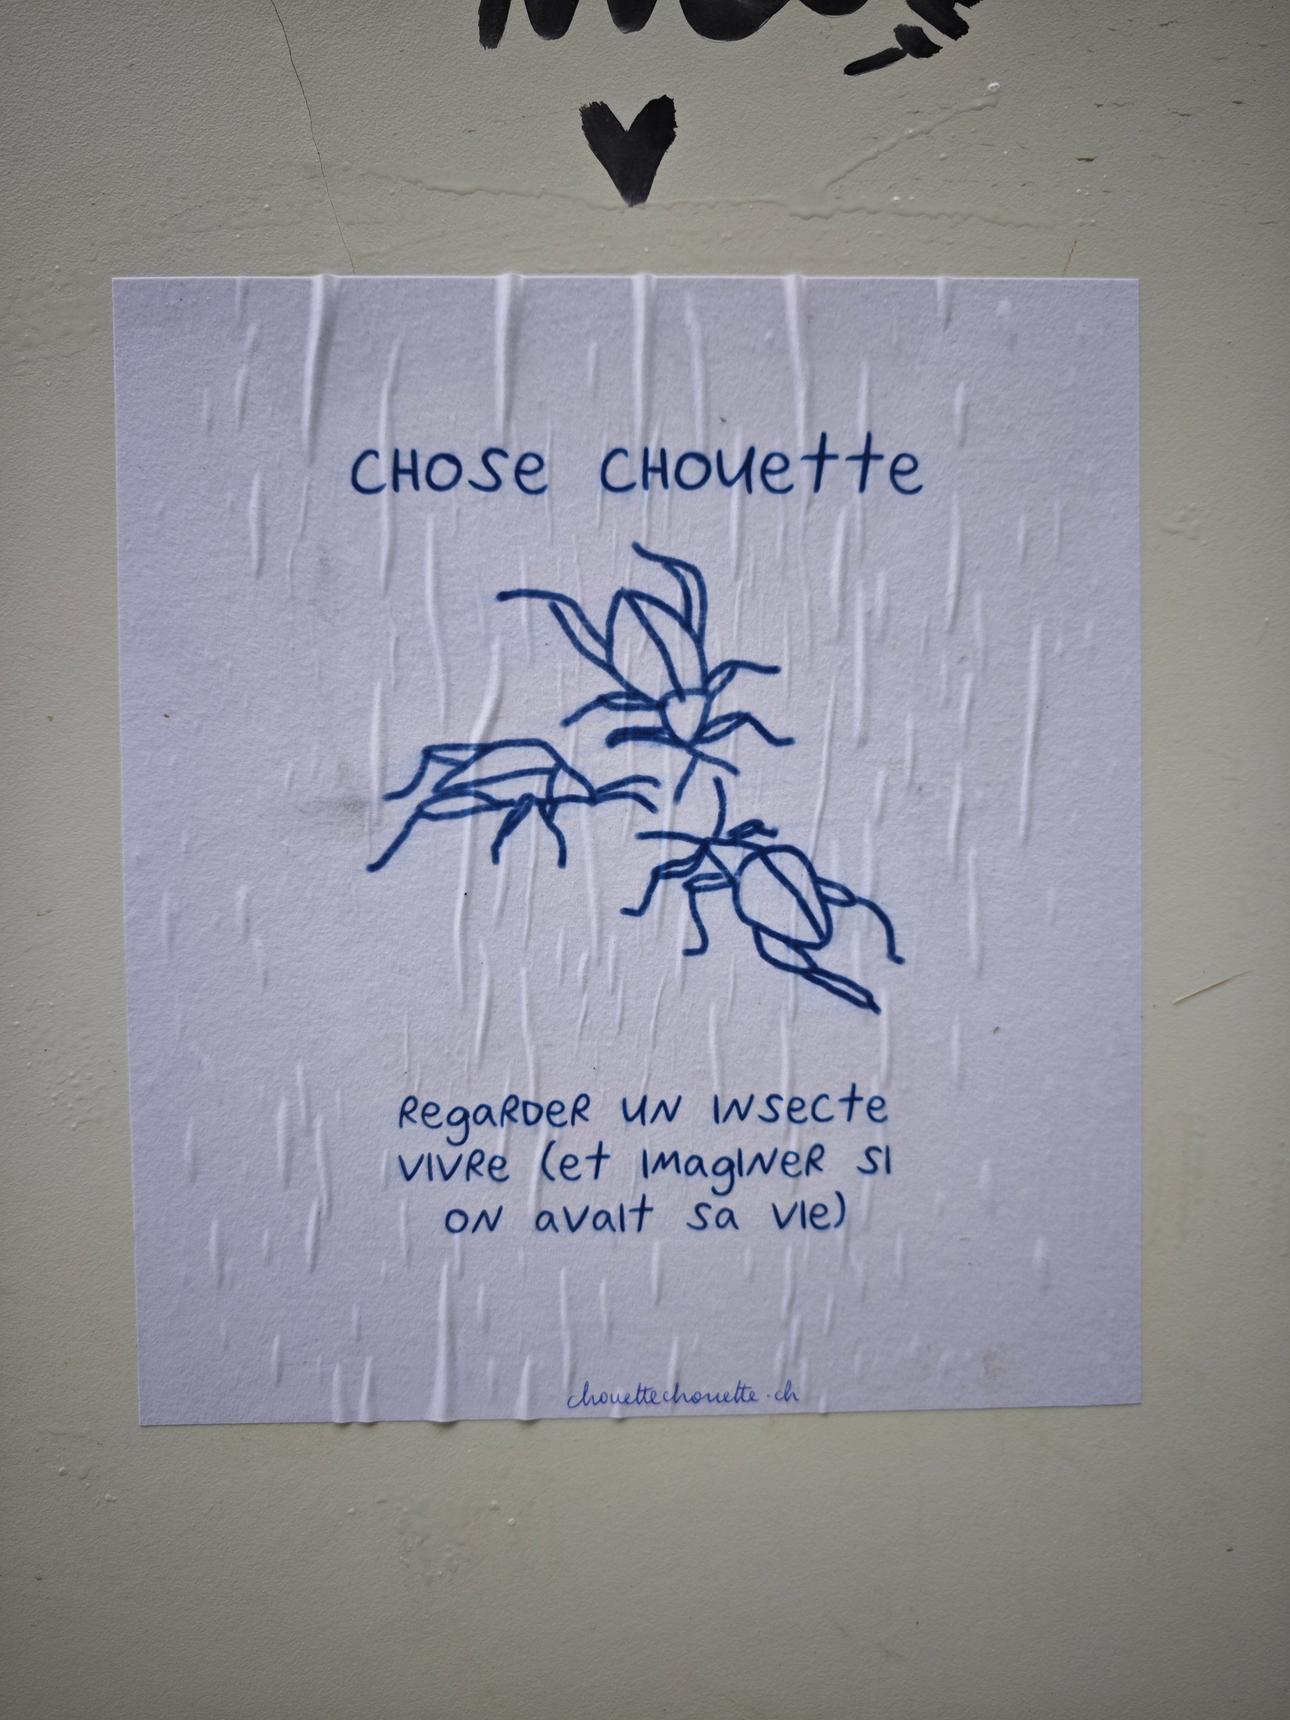 CHOSE CHOUette
RegaRDeR UN INSecte
VIVRe (et IMagINeR SI
ON avaIt Sa VIe)
chouettechouette.ch